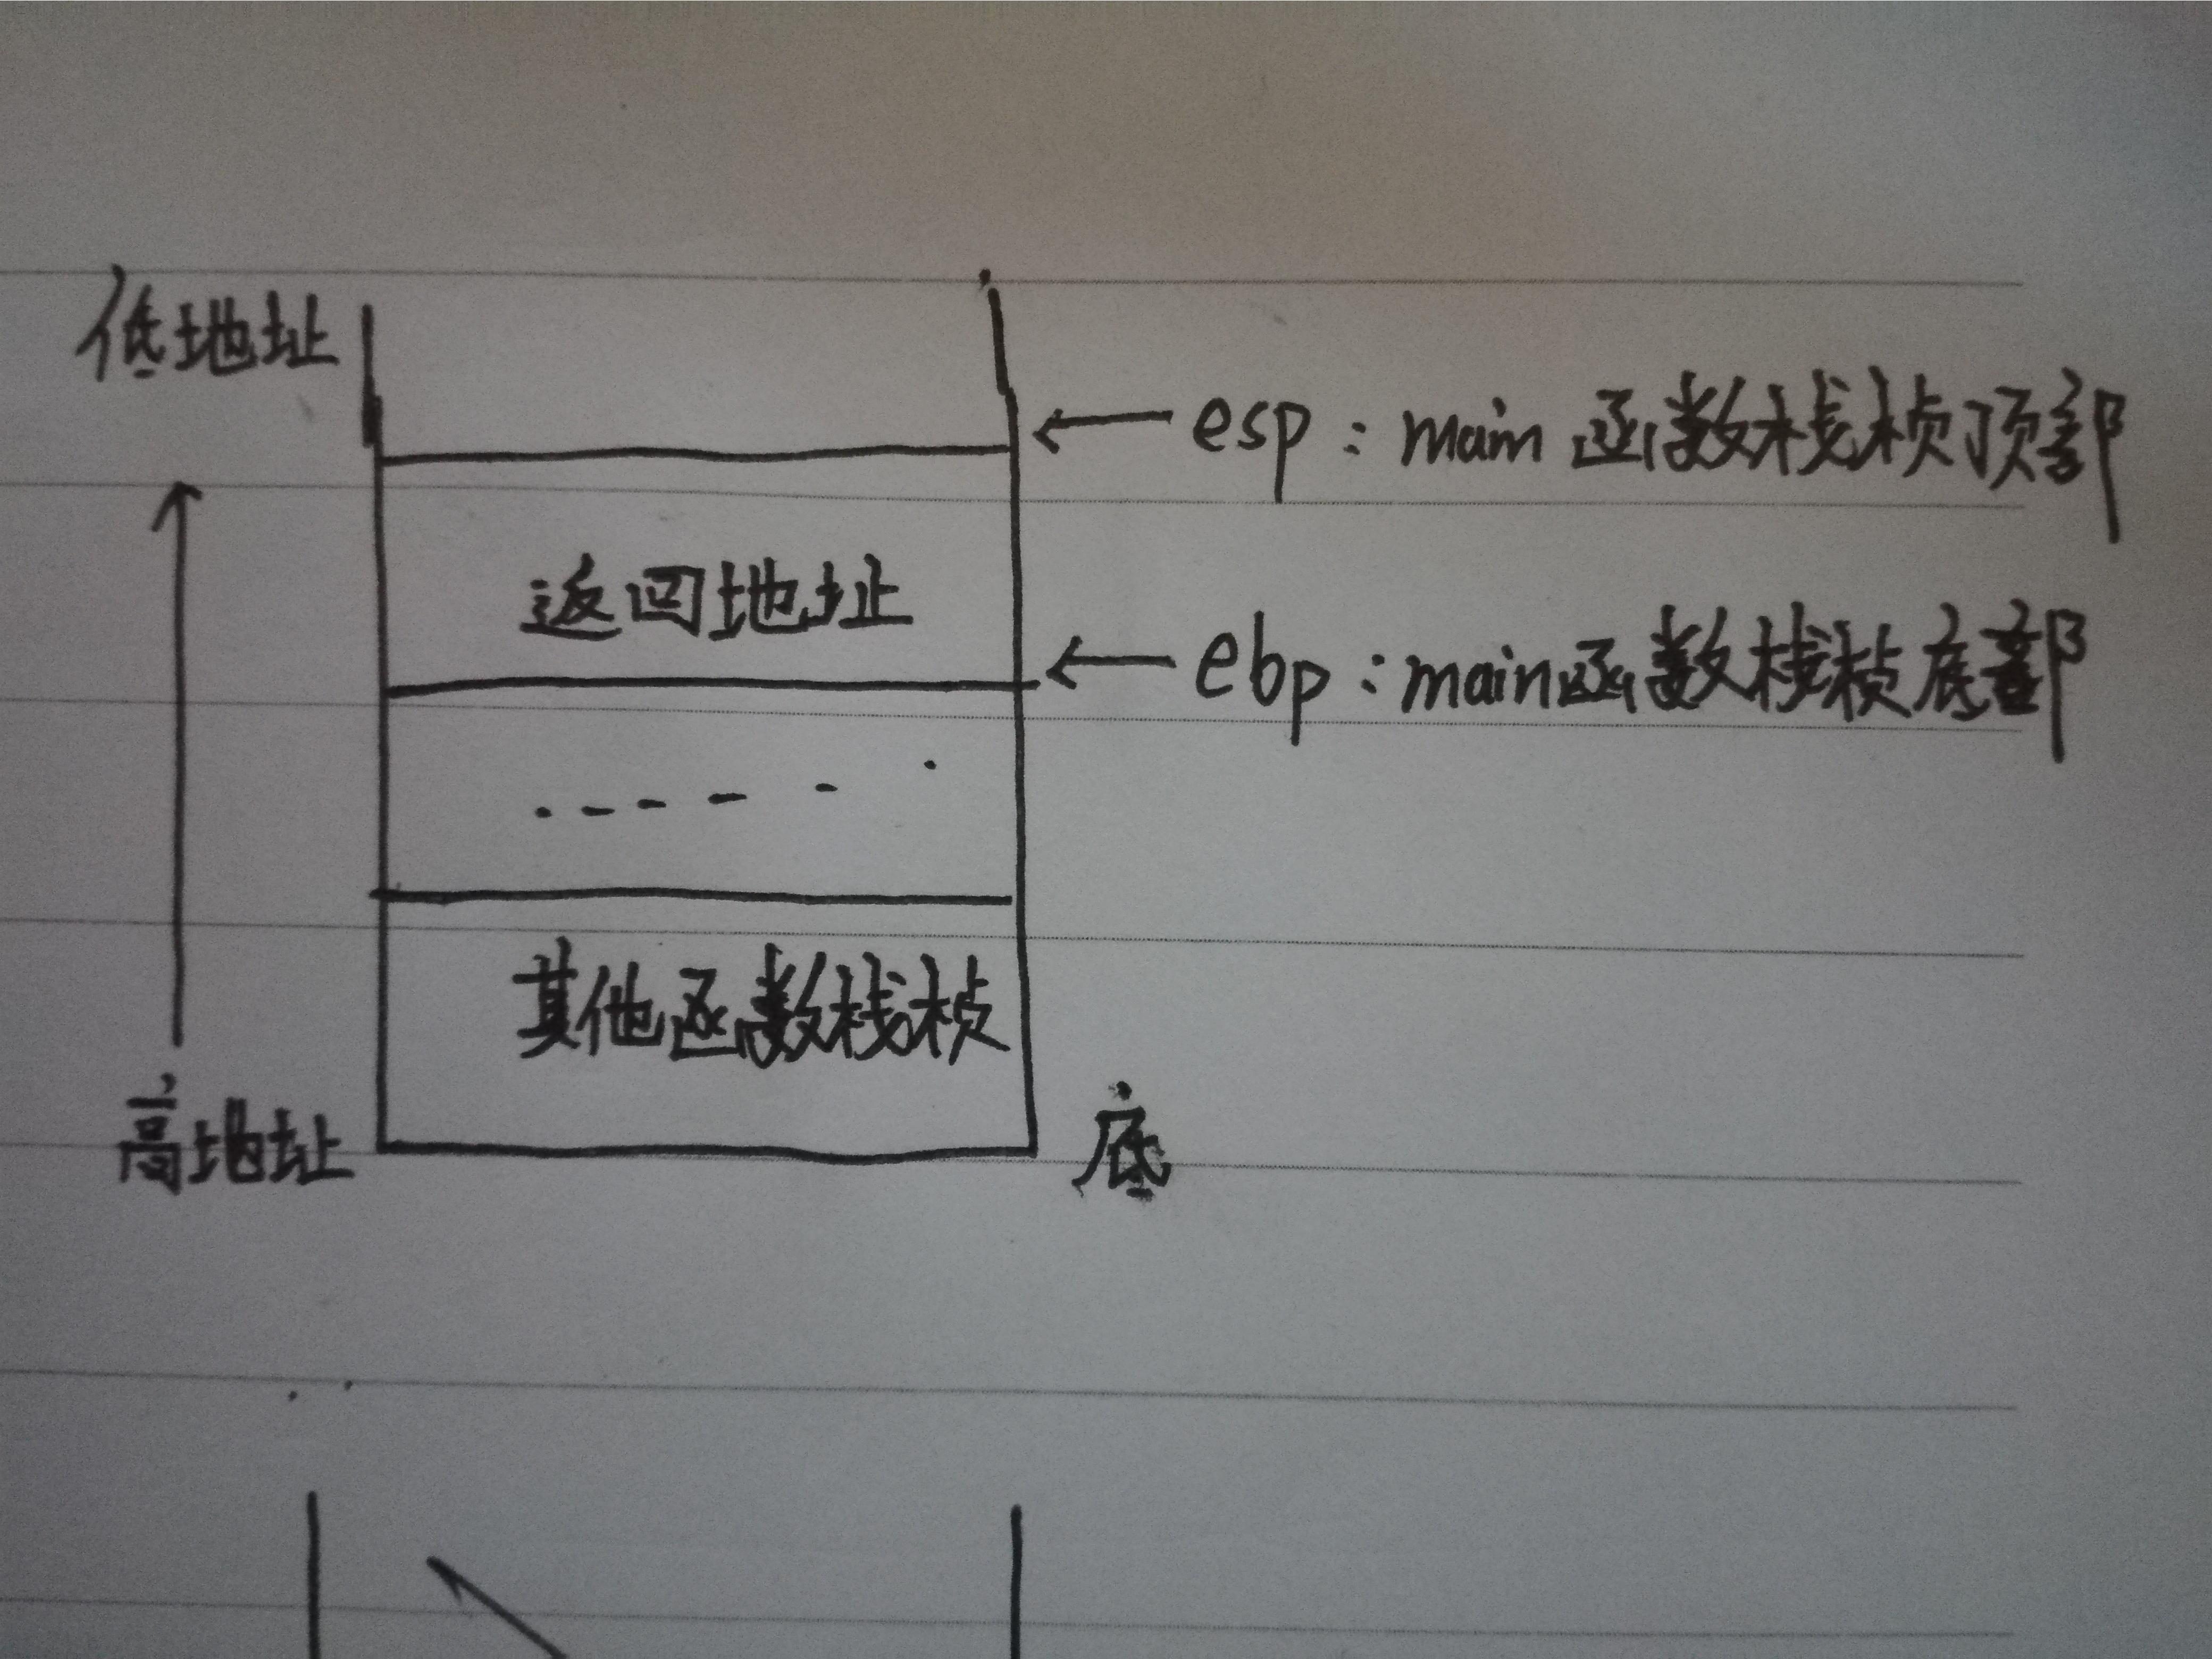 低地址
esp：main函数栈桢顶部
返回地址
ebp：main函数栈桢底部
其他函数栈桢
高地址
底